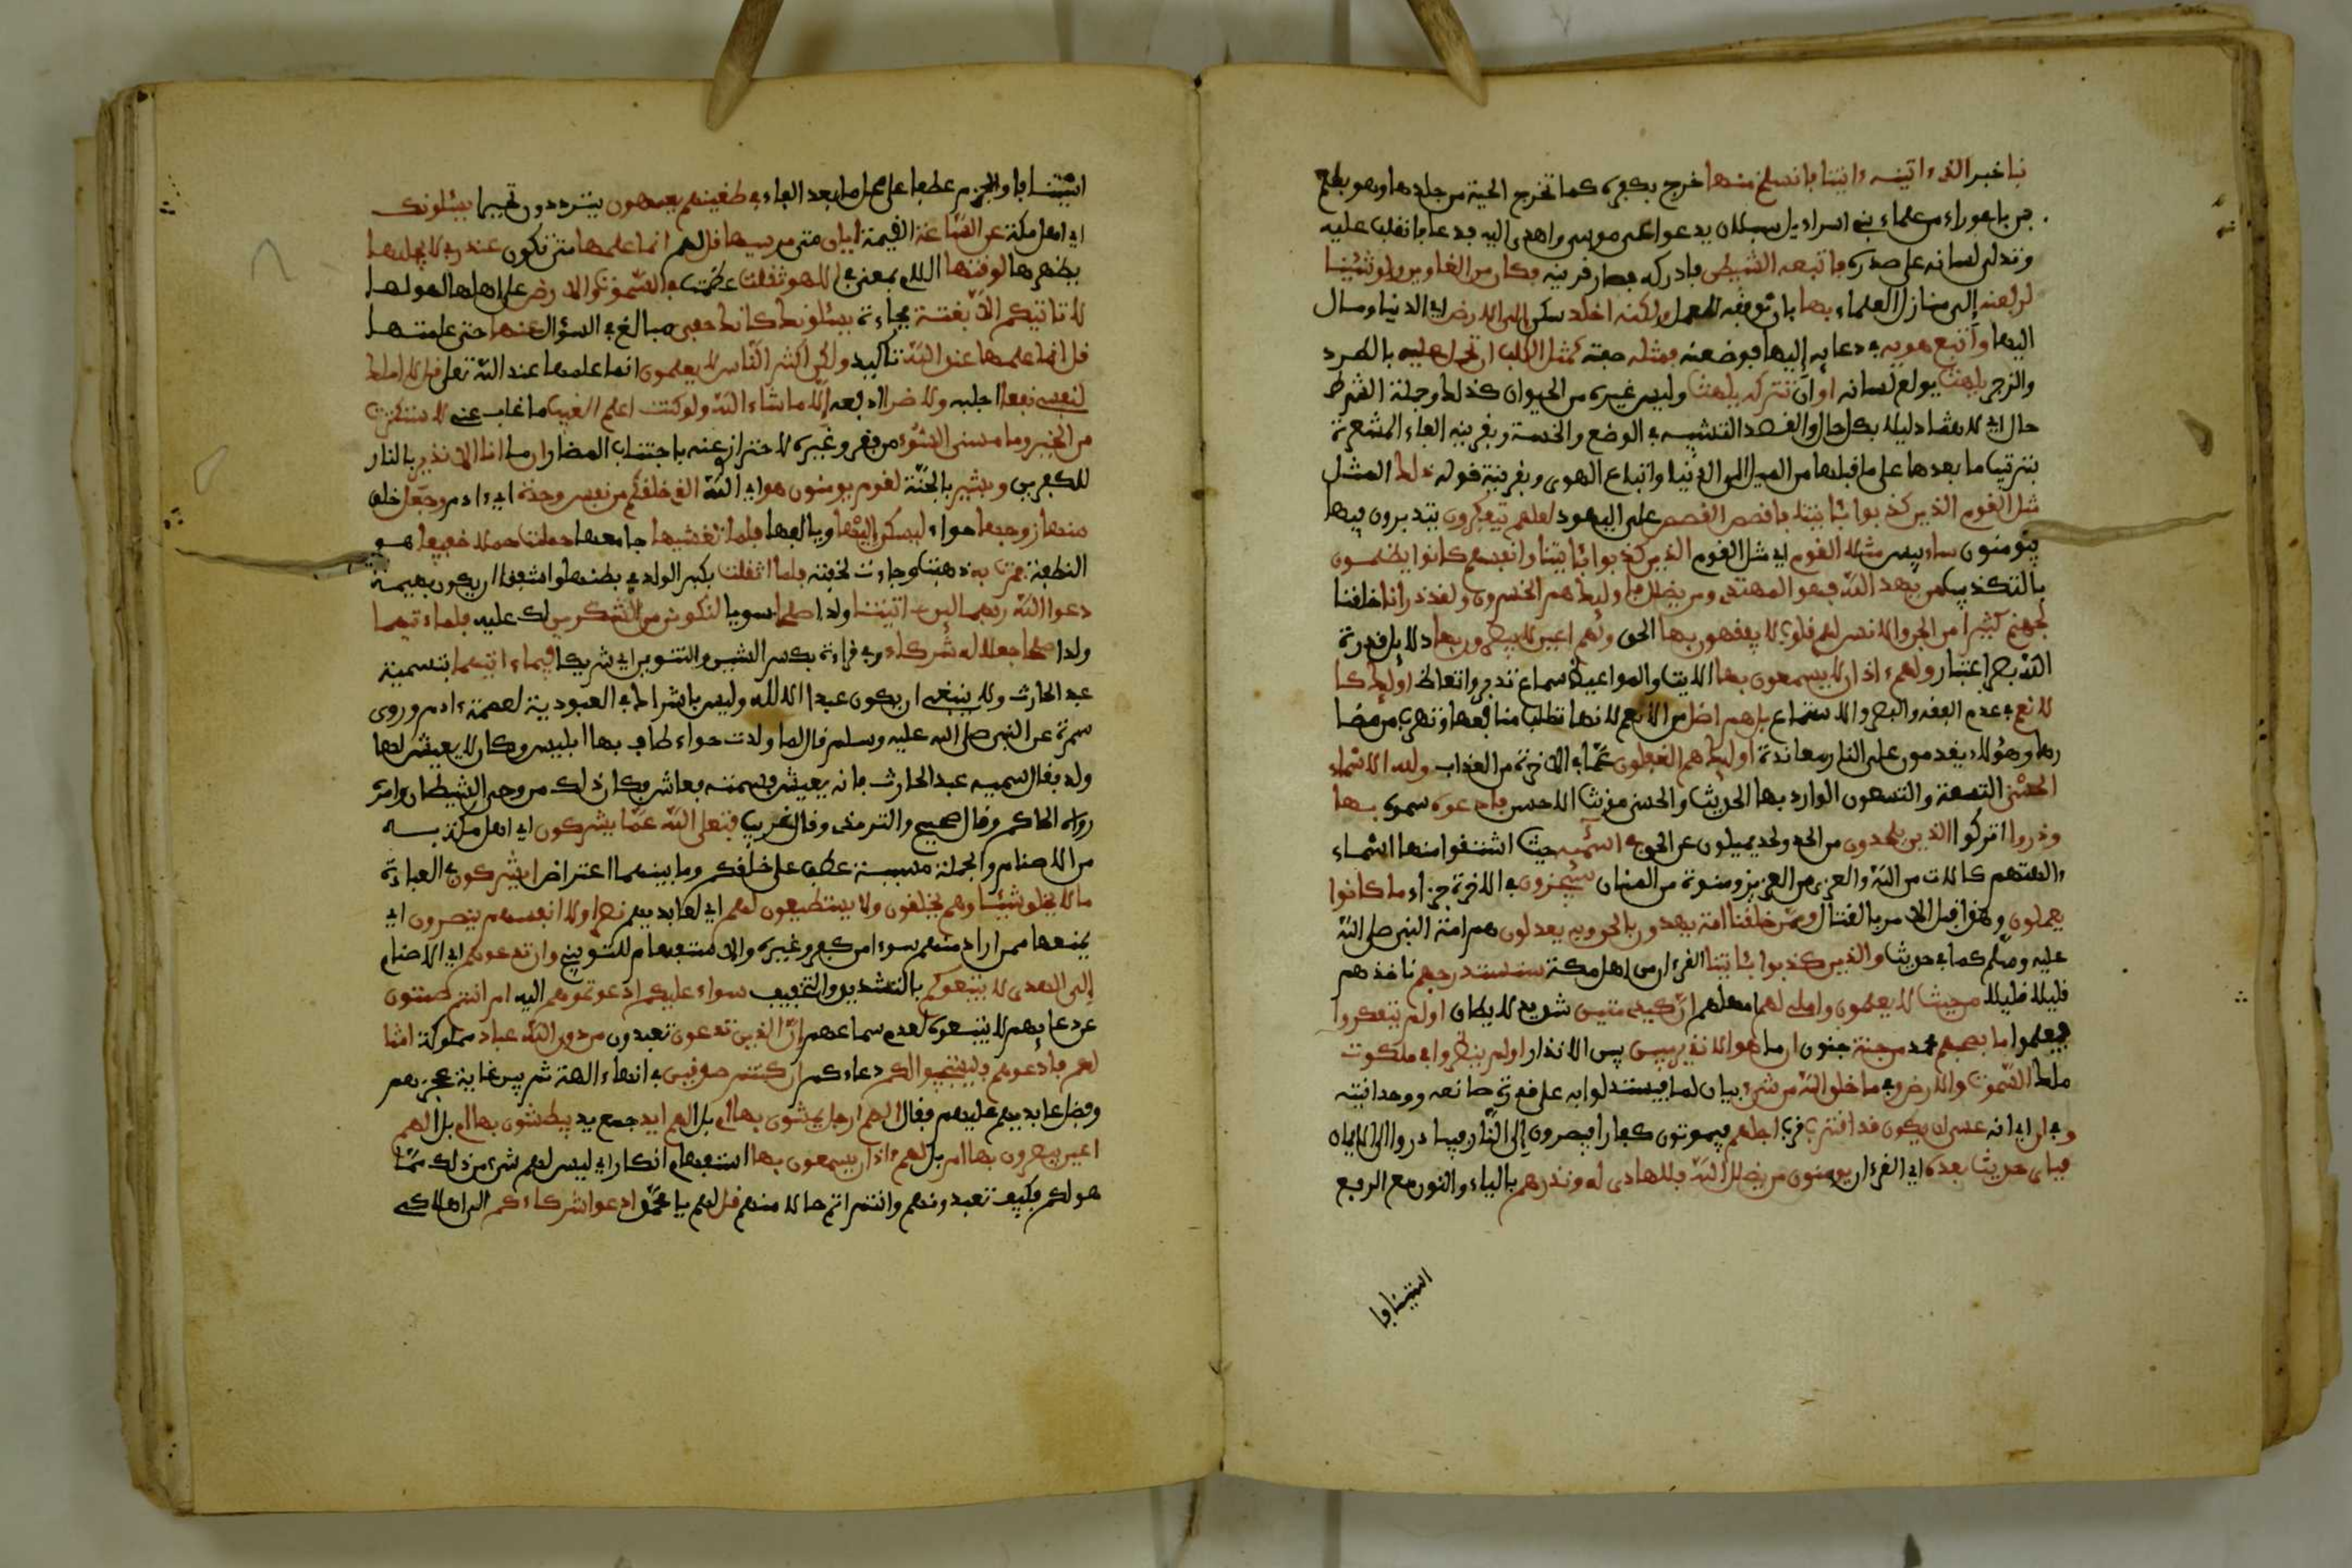 نبا خبر الذى ءاتينه ءايتنا فانسلخ منها خرج بكفره كما تخرج الحية من جلدها وهو بلعم
بن باعوراء من علماء بنى اسراءيل سيل ان يدعوا على موسى واهدى اليه فدعا فانقلب عليه
وتدلى لسانه على صدره فاتبعه الشيطن فادركه فصار قرينه فكان من الغاوين ولو شئنا
لرفعنه إلى منازل العلماء بها بان نوفقه للعمل ولكنه اخلد سكن إلى الارض اى الدنيا ومال
اليها واتبع هويه فى دعايه إليها فوضعنه فمثله صفته كمثل الكلب ان تحمل عليه بالطرد
والزجر يلهث يدلع لسانه او ان تتركه يلهث وليس غيره من الحيوان كذلك وجملة الشرط
حال اى لاهثا ذليلا بكل حال والقصد التشبيه فى الوضع والخسة وبقرينة الفاء المشعرة
بترتيب ما بعدها على ما قبلها من الميل الى الدنيا واتباع الهوى وبقرينة قوله ذلك المثل
مثل القوم الذين كذبوا بئايتنا فاقصص القصص على اليهود لعلهم يتفكرون يتدبرون فيها
فيؤمنون ساء بيس مثلا القوم اى مثل القوم الذين كذبوا بئايتنا وانفسهم كانوا يظلمون
بالتكذيب من يهد الله فهو المهتدى ومن يضلل فاوليك هم الخسرون ولقد ذرانا خلقنا
لجهنم كثيرا من الجن والانس لهم قلوب لا يفقهون بها الحق ولهم اعين لا يبصرون بها دلايل قدرة
الله بصر اعتبار ولهم ءاذان لا يسمعون بها الايت والمواعيظ سماع تدبر واتعاظ اوليك كا
لانعم فى عدم الفقه والبصر والاستماع بل هم اضل من الانعم لانها تطلب منافعها وتهرب من مضا
رها وهؤلاء يقدمون على النار معاندة اوليك هم الغفلون عما فى الاخرة من العذاب ولله الاسماء
الحسنى التسعة والتسعون الوارد بها الحديث والحسنى مونث الاحسن فادعوه سموه بها
وذروا اتركوا الذين يلحدون من الحد ولحد يميلون عن الحق فى اسمئه حيث اشتقوا منها اسماء
ءالهتهم كاللات من الله والعزى من العزيز ومنوة من المنان سيجزون فى الاخرة جزاء ما كانوا
يعملون وهذا قبل الامر بالقتال وممن خلقنا امة يهدون بالحق وبه يعدلون هم امة النبى صلى الله
عليه وسلم كما فى حديث والذين كذبوا بئايتنا القرءان من اهل مكة سنستدرجهم ناخذهم
قليلا قليلا من حيث لا يعلمون واملى لهم امهلهم ان كيدى متين شديد لا يطاق اولم يتفكروا
فيعلموا ما بصحبهم محمد من جنة جنون ان ما هو الا نذير مبين بين الانذار اولم ينظروا فى ملكوت
ملك السموت والارض وفى ما خلق الله من شىء بيان لما فيستدلوا به على قدرة صانعه ووحدانيته
وفى ان اى انه عسى ان يكون قد اقترب قرب اجلهم فيموتون كفارا فيصرون إلى النار فيبادروا الى الايمان
فباى حديث بعده اى القرءان يومنون من يضلل الله فلا هادى له ونذرهم بالياء والنون مع الرفع
استينافا
استينافا والجزم عطفا على محل ما بعد الفاء فى طغينهم يعمهون يترددون تحيرا يسئلونك
اى اهل مكة عن الساعة القيمة ايان متى مرسيها قل لهم انما علمها متى تكون عند ربى لا يجليها
يظهرها لوقتها اللام بمعنى فى الا هو ثقلت عظمت فى السموت والارض على اهلها لهولها
لا تاتيكم الا بغتة فجاءة يسئلونك كانك حفى مبالغ فى السؤال عنها حتى علمتها
قل انما علمها عند الله تاكيد ولكن اكثر الناس لا يعلمون انما علمها عند الله تعلى قل لا املك
لنفسى نفعا اجلبه ولا ضرا ادفعه إلا ما شاء الله ولو كنت اعلم الغيب ما غاب عنى لاستكثرت
من الخير وما مسنى السوء من فقر وغيره لاحترازى عنه باجتناب المضار ان ما انا الا نذير بالنار
للكفرين وبشير بالجنة لقوم يومنون هو اى الله الذى خلقكم من نفس وحدة اى ءادم وجعل خلق
منها زوجها حواء ليسكن إليها ويالفها فلما تغشيها جامعها حملت حملا خفيفا هو
النطفة فمرت به ذهبت وجاءت لخفته فلما اثقلت بكبر الولد فى بطنها واشفقا ان يكون بهيمة
دعوا الله ربهما لين ءاتيتنا ولدا صلحا سويا لنكونن من الشكرين لك عليه فلما ءاتيهما
ولدا صلحا جعلا له شركاء وفى قراءة بكسر الشين والتنوين اى شريكا فيما ءاتيهما بتسميته
عبد الحارث ولا ينبغى ان يكون عبدا الا لله وليس باشراك فى العبودية لعصمة ءادم وروى
سمرة عن النبى صلى الله عليه وسلم قال لما ولدت حواء طاف بها ابليس وكان لا يعيش لها
ولد فقال سميه عبد الحارث فانه يعيش فسمته فعاش فكان ذلك من وحى الشيطان وامره
رواه الحاكم وقال صحيح والترمذى وقال غريب فتعلى الله عما يشركون اى اهل مكة به
من الاصنام والجملة مسببة عطف على خلقكم وما بينهما اعتراض ايشركون فى العبادة
ما لا يخلق شيئا وهم يخلقون ولا يستطيعون لهم اى لعابديهم نصرا ولا انفسهم ينصرون اى
يمنعها ممن اراد منهم سوءا من كسر وغيره والاستفهام للتوبيخ وان تدعوهم اى الاصنام
إلى الهدى لا يتبعوكم بالتشديد والتخفيف سواء عليكم ادعوتموهم اليه ام انتم صمتون
عن دعايهم لا يتبعوه لعدم سماعهم إن الذين تدعون تعبدون من دون الله عباد مملوكة امثا
لكم فادعوهم فليستجيبوا لكم دعاءكم ان كنتم صدقين فى انهاء الهة ثم بين غاية عجزهم
وفضل عابديهم عليهم فقال الهم ارجل يمشون بها ام بل الهم ايد جمع يد يبطشون بها ام بل الهم
اعين يبصرون بها ام بل لهم ءاذان يسمعون بها استفهام انكار اى ليس لهم شىء من ذلك مما
هو لكم فكيف تعبدونهم وانتم اتم حالا منهم قل لهم يا محمد ادعوا شركاءكم الى اهلاكى